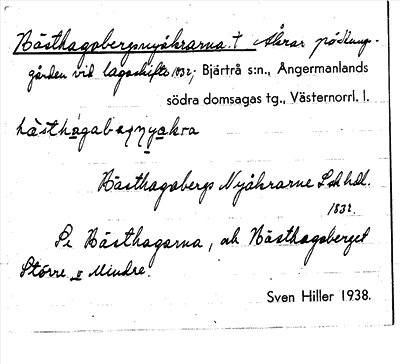 Hästhagabergsnyåkrarna. † Åkrar på Kungs-
gården vid lagaskifte 1832; Bjärtrå s:n., Ångermanlands
södra domsagas tg., Västernorrl. l.
hästhagabærnyakra
Hästhagabergs Nyåkrarne Lskhdl.
1832.
Se Hästhagarna, och Hästhagaberget
Större o Mindre.
Sven Hiller 1938.